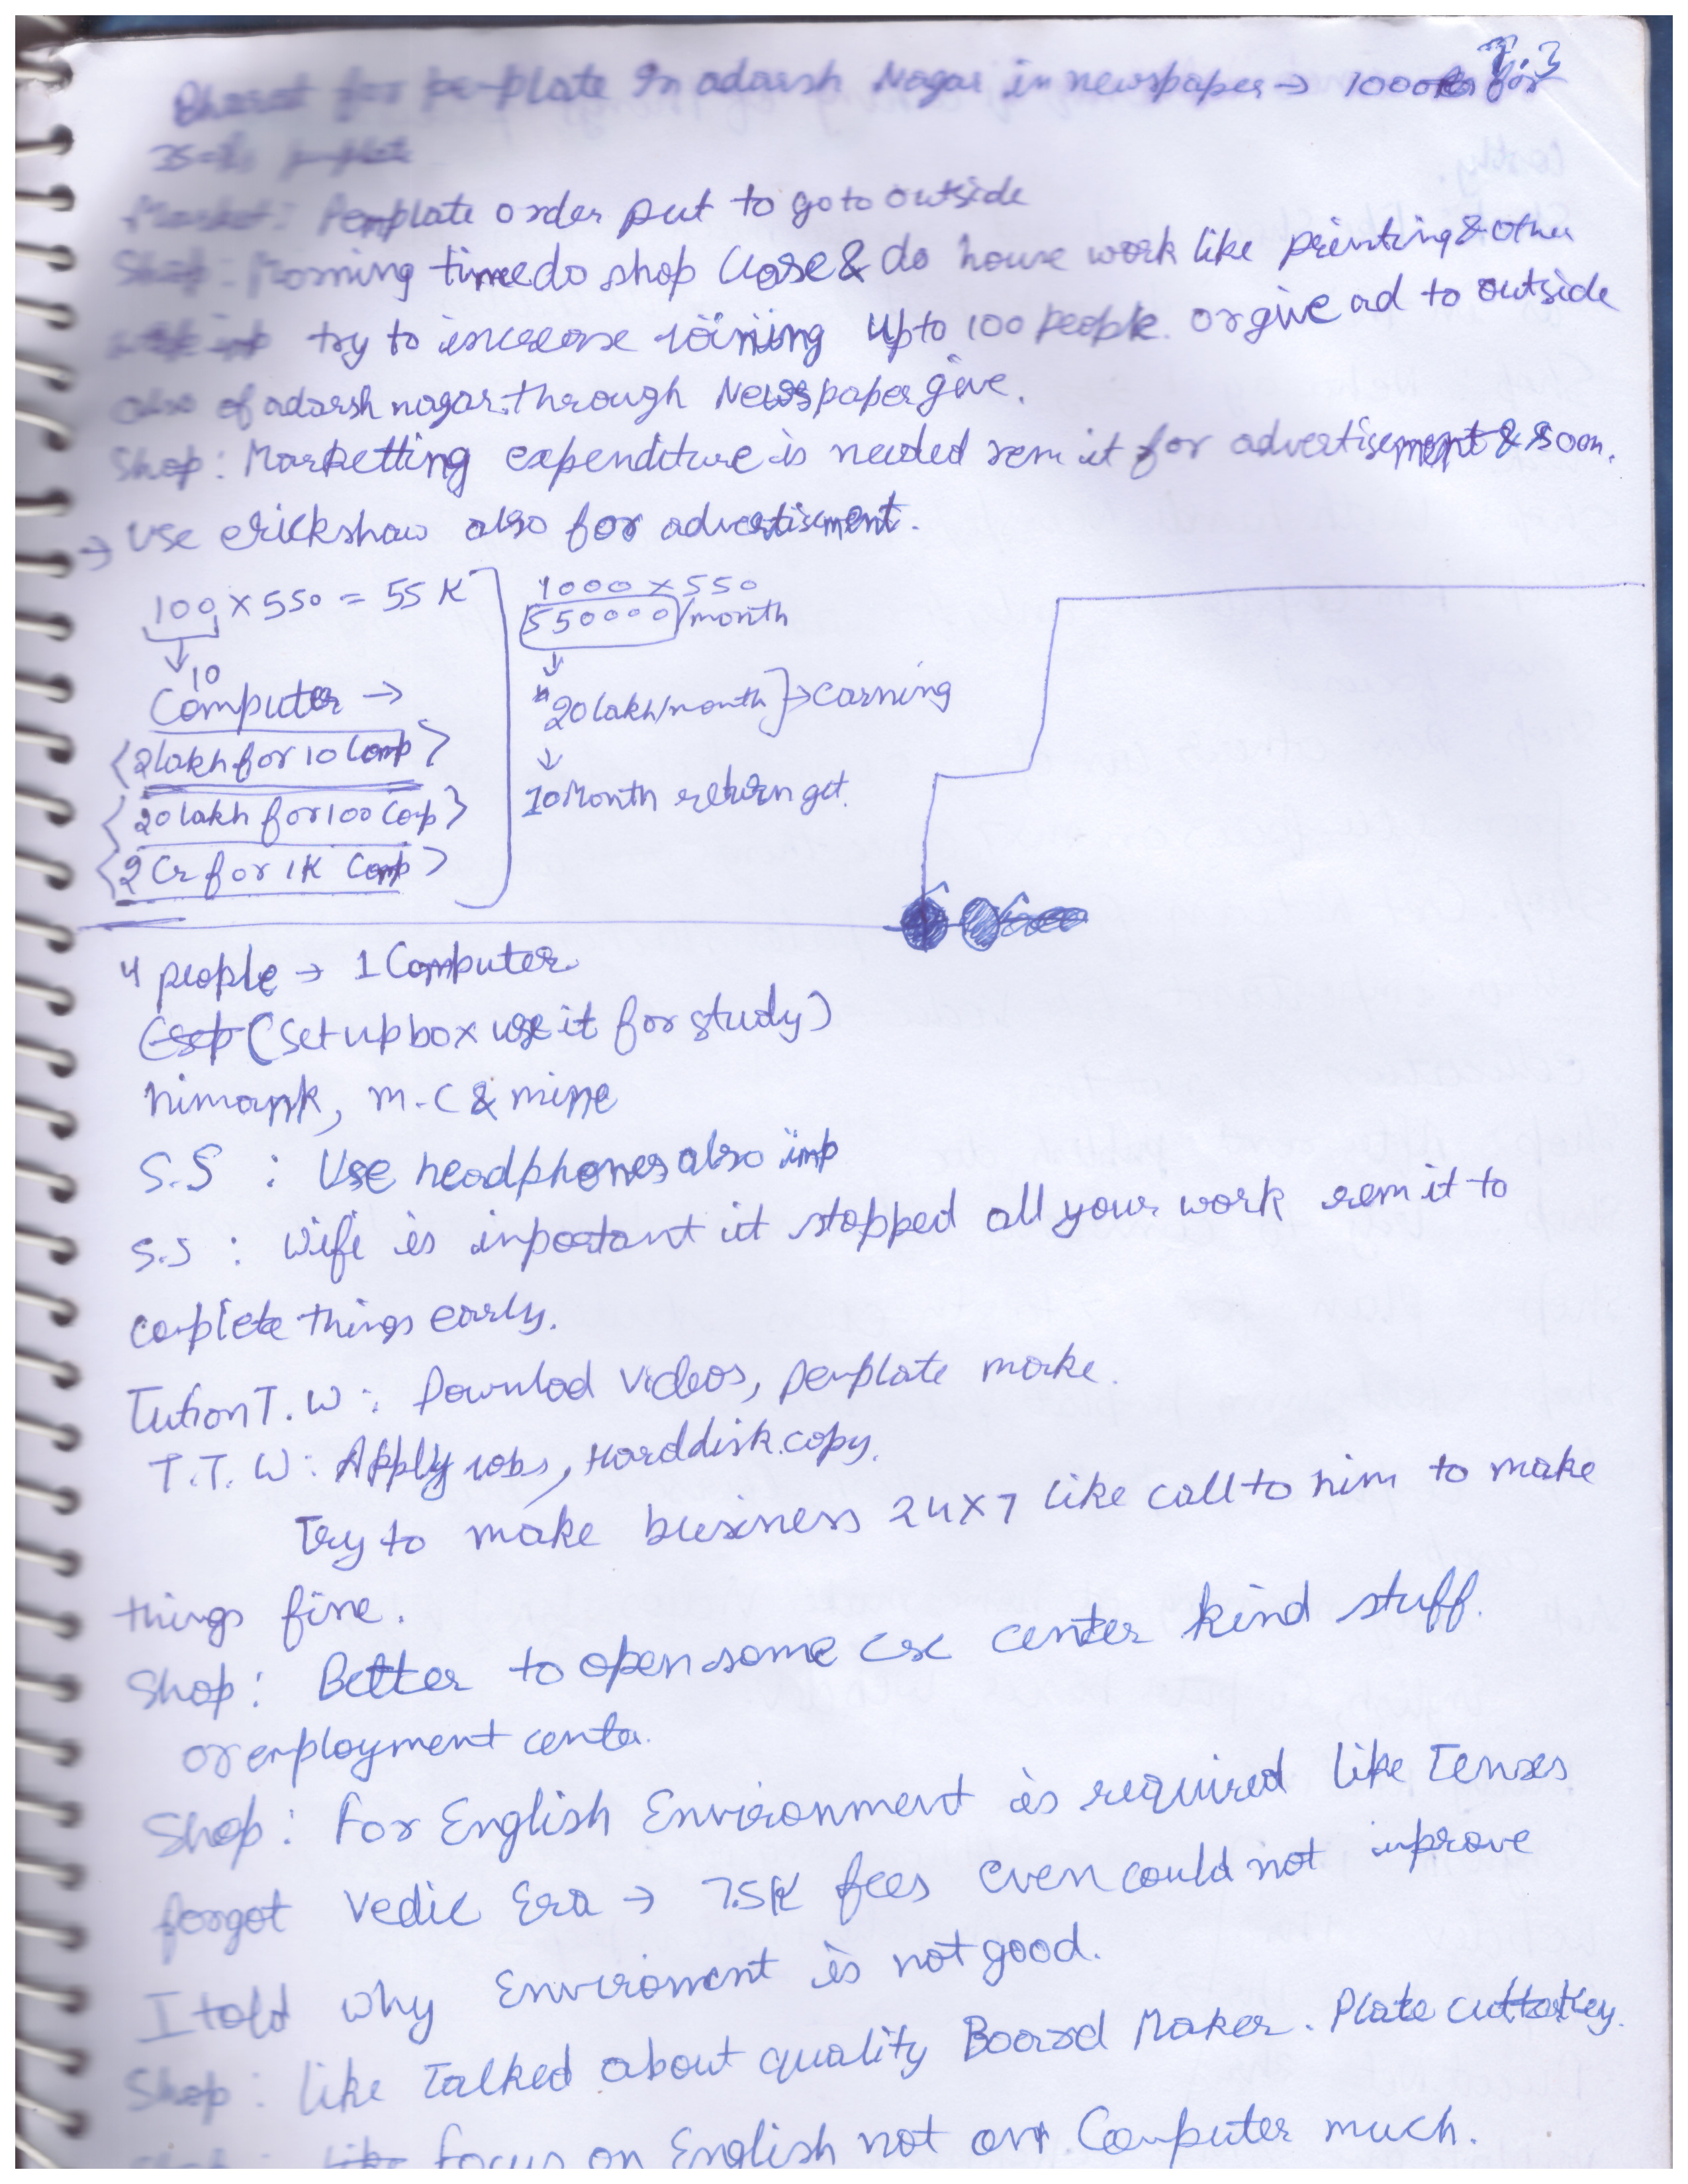 7.3
Bharat for pe-plate In adarsh Nagar in newspaper → 1000Rs for
Market: Pemplate order put to go to outside
Shop: Morning time do shop Close & do house work like printing & other
try to increase joining upto 100 people. or give ad to outside
also of adarsh nagar. through Newspaper give.
Shop: Marketting expenditure is needed rem it for advertisement & soon.
→ Use erickshaw also for advertisment.
100 × 550 = 55K
↓10
Computer →
<2lakh for 10 Comp>
{20 lakh for 100 Cop}
<2 Cr for 1K Comp>
1000 × 550
550000/month
↓
20 lakh/month]→ earning
↓
10 Month return get.
4 people → 1 Computer
(Set up box use it for study)
himank, m.c & mine
S.S : Use headphones also imp
S.S : Wifi is inportant it stopped all your work rem it to
complete things early.
Tution T.W : Downlod videos, pemplate make.
T.T.W : Apply jobs, Harddisk copy.
Try to make business 24x7 like call to him to make
things fine.
Shop: Better to open some csc center kind stuff.
or employment center.
Shop: For English Environment is required like Tenses
forgot Vedic Era → 7.5K fees even could not improve
I told why Enviroment is not good.
Shop: like Talked about quality Board Maker. Plate
focus on English not on Computer much.